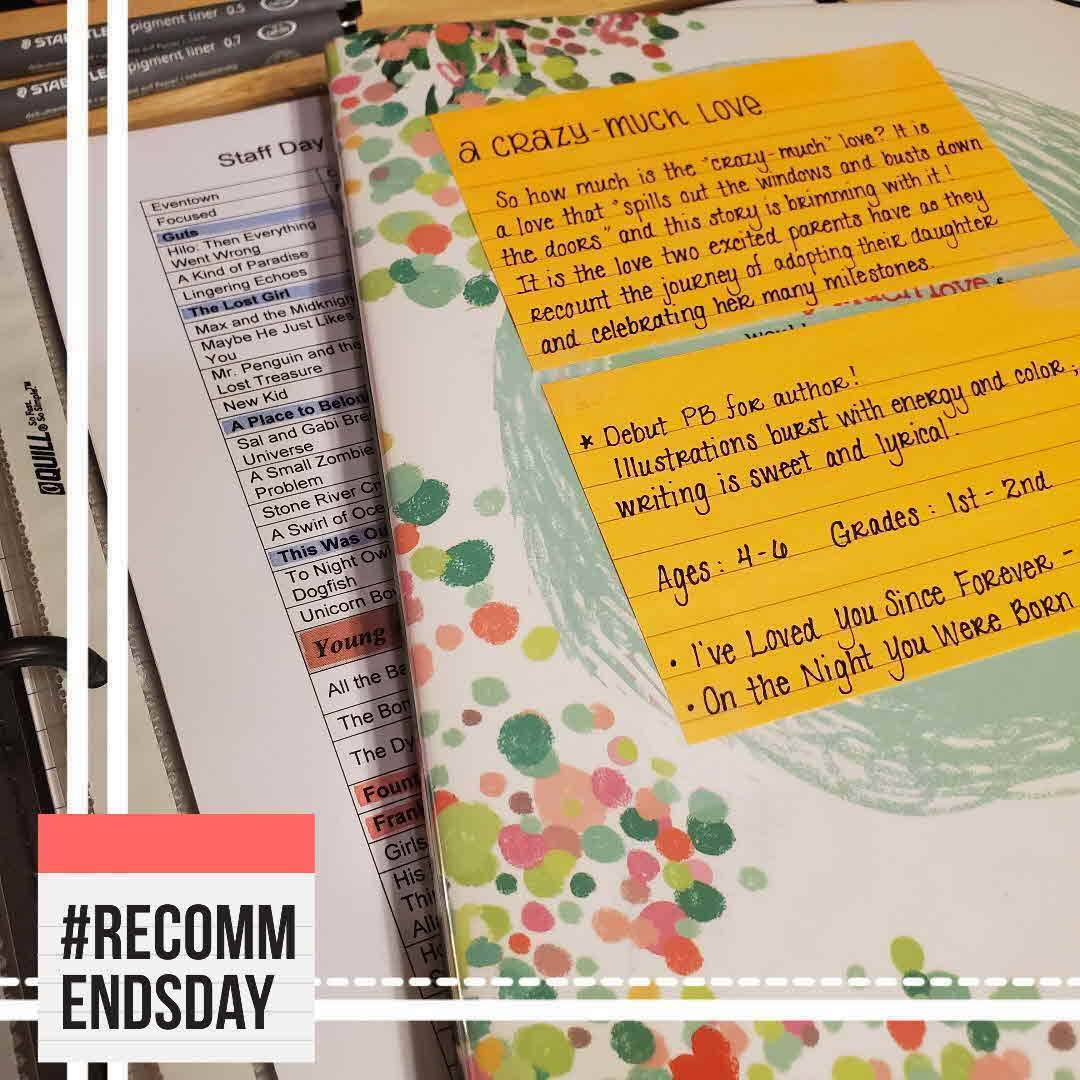 STAEDTLER pigment liner 0.5
STAEDTLER pigment liner 0.7
Staff Day
Eventown
Focused
Guts
Hilo: Then Everything
Went Wrong
A Kind of Paradise
Lingering Echoes
The Lost Girl
Max and the Midknight
Maybe He Just Likes
You
Mr. Penguin and the
Lost Treasure
New Kid
A Place to Belon
Sal and Gabi Bre
Universe
A Small Zombie
Problem
Stone River Cr
A Swirl of Oce
This Was Ou
To Night Owl
Dogfish
Unicorn Bo
Young
All the Ba
The Bon
The Dy
Foun
Fran
Girls
His
Thi
QUILL So Fast. So Simple.™
a CRAZY-MUCH LOVE
So how much is the "crazy-much" love? It is
a love that "spills out the windows and busts down
the doors" and this story is brimming with it!
It is the love two excited parents have as they
recount the journey of adopting their daughter
and celebrating her many milestones.
* Debut PB for author!
Illustrations burst with energy and color;
writing is sweet and lyrical.
Ages: 4-6 Grades: 1st - 2nd
• I've Loved You Since Forever -
• On the Night You Were Born
#RECOMM
ENDSDAY